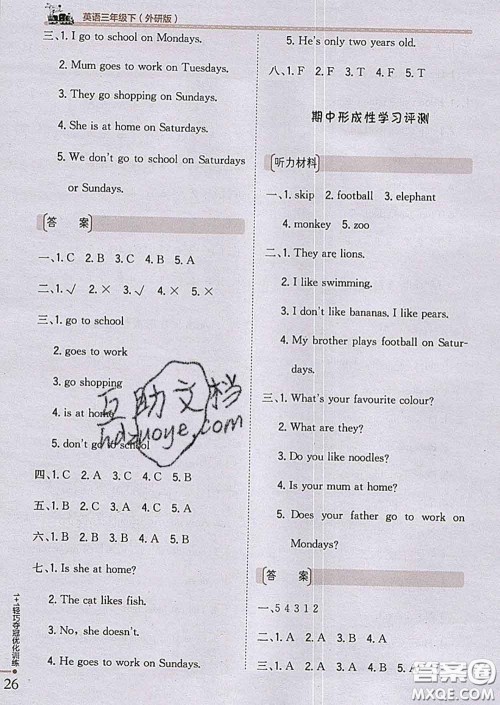 英语三年级下（外研版）
三、1. I go to school on Mondays.
2. Mum goes to work on Tuesdays.
3. They go shopping on Sundays.
4. She is at home on Saturdays.
5. We don't go to school on Saturdays
or Sundays.
答 案
一、1. C 2. B 3. C 4. B 5. A
二、1. √ 2. × 3. √ 4. × 5. √
三、1. go to school
2. goes to work
3. go shopping
4. is at home
5. don't go to school
四、1. C 2. A 3. B 4. C 5. B
五、1. B 2. C 3. A 4. A 5. C
六、1. B 2. A 3. C 4. C 5. B
七、1. I am at home.
2. The cat likes fish.
3. No, she doesn't.
4. He goes to work on Sundays.
1+1轻巧夺冠优化训练
26
5. He's only two years old.
八、1. F 2. F 3. T 4. F 5. T
期中形成性学习评测
听力材料
一、1. skip 2. football 3. elephant
4. monkey 5. zoo
二、1. They are lions.
2. I like swimming.
3. I don't like bananas. I like pears.
4. My brother plays football on Satur-
days.
三、1. What's your favourite colour?
2. What are they?
3. Do you like noodles?
4. Is your mum at home?
5. Does your father go to work on
Mondays?
答 案
一、5 4 3 1 2
二、1. A 2. A 3. B 4. A
三、1. A 2. A 3. A 4.
互助文档
hdzuoye.com
答案圈
MXQE.COM